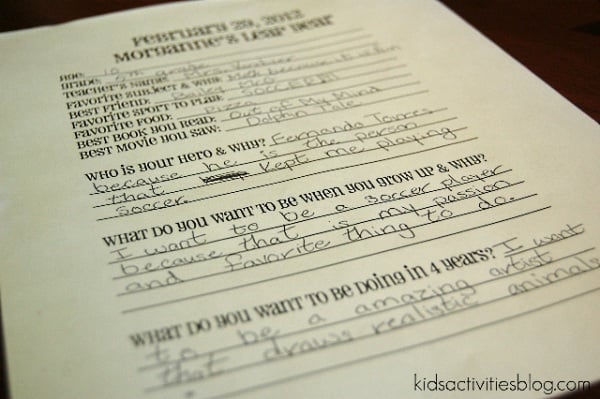 February 29, 2012
Morganne's Leap Year
Age: 10
Grade: 5th grade
Teacher's Name: Mrs.
Favorite Subject & Why: Math because it is fun
Best Friend: Bailey
Favorite Sport to Play: SOCCER!!!
Favorite Food: pizza
Best Book you Read: Out of My Mind
Best Movie you Saw: Dolphin Tale
Who is your Hero & Why? Fernando Torres
because he is the person
that kept me playing
soccer.
What do you want to be when you grow up & why?
I want to be a soccer player
because that is my passion
and favorite thing to do.
What do you want to be doing in 4 years? I want
to be a amazing artist
that draws realistic animals
.
kidsactivitiesblog.com